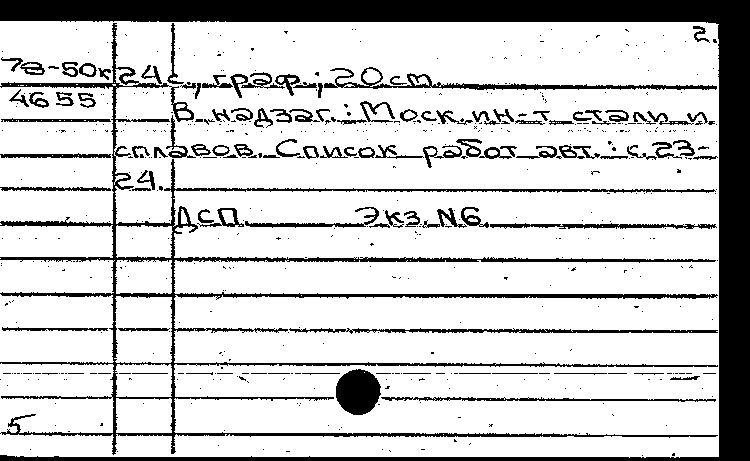 2.
78-50к 24 с., граф.; 20 ст.
4655 В надзаг.: Моск. ин-т стали и
сплавов. Список работ авт.: с. 23-
24.
ДСП. Экз. N6.
5